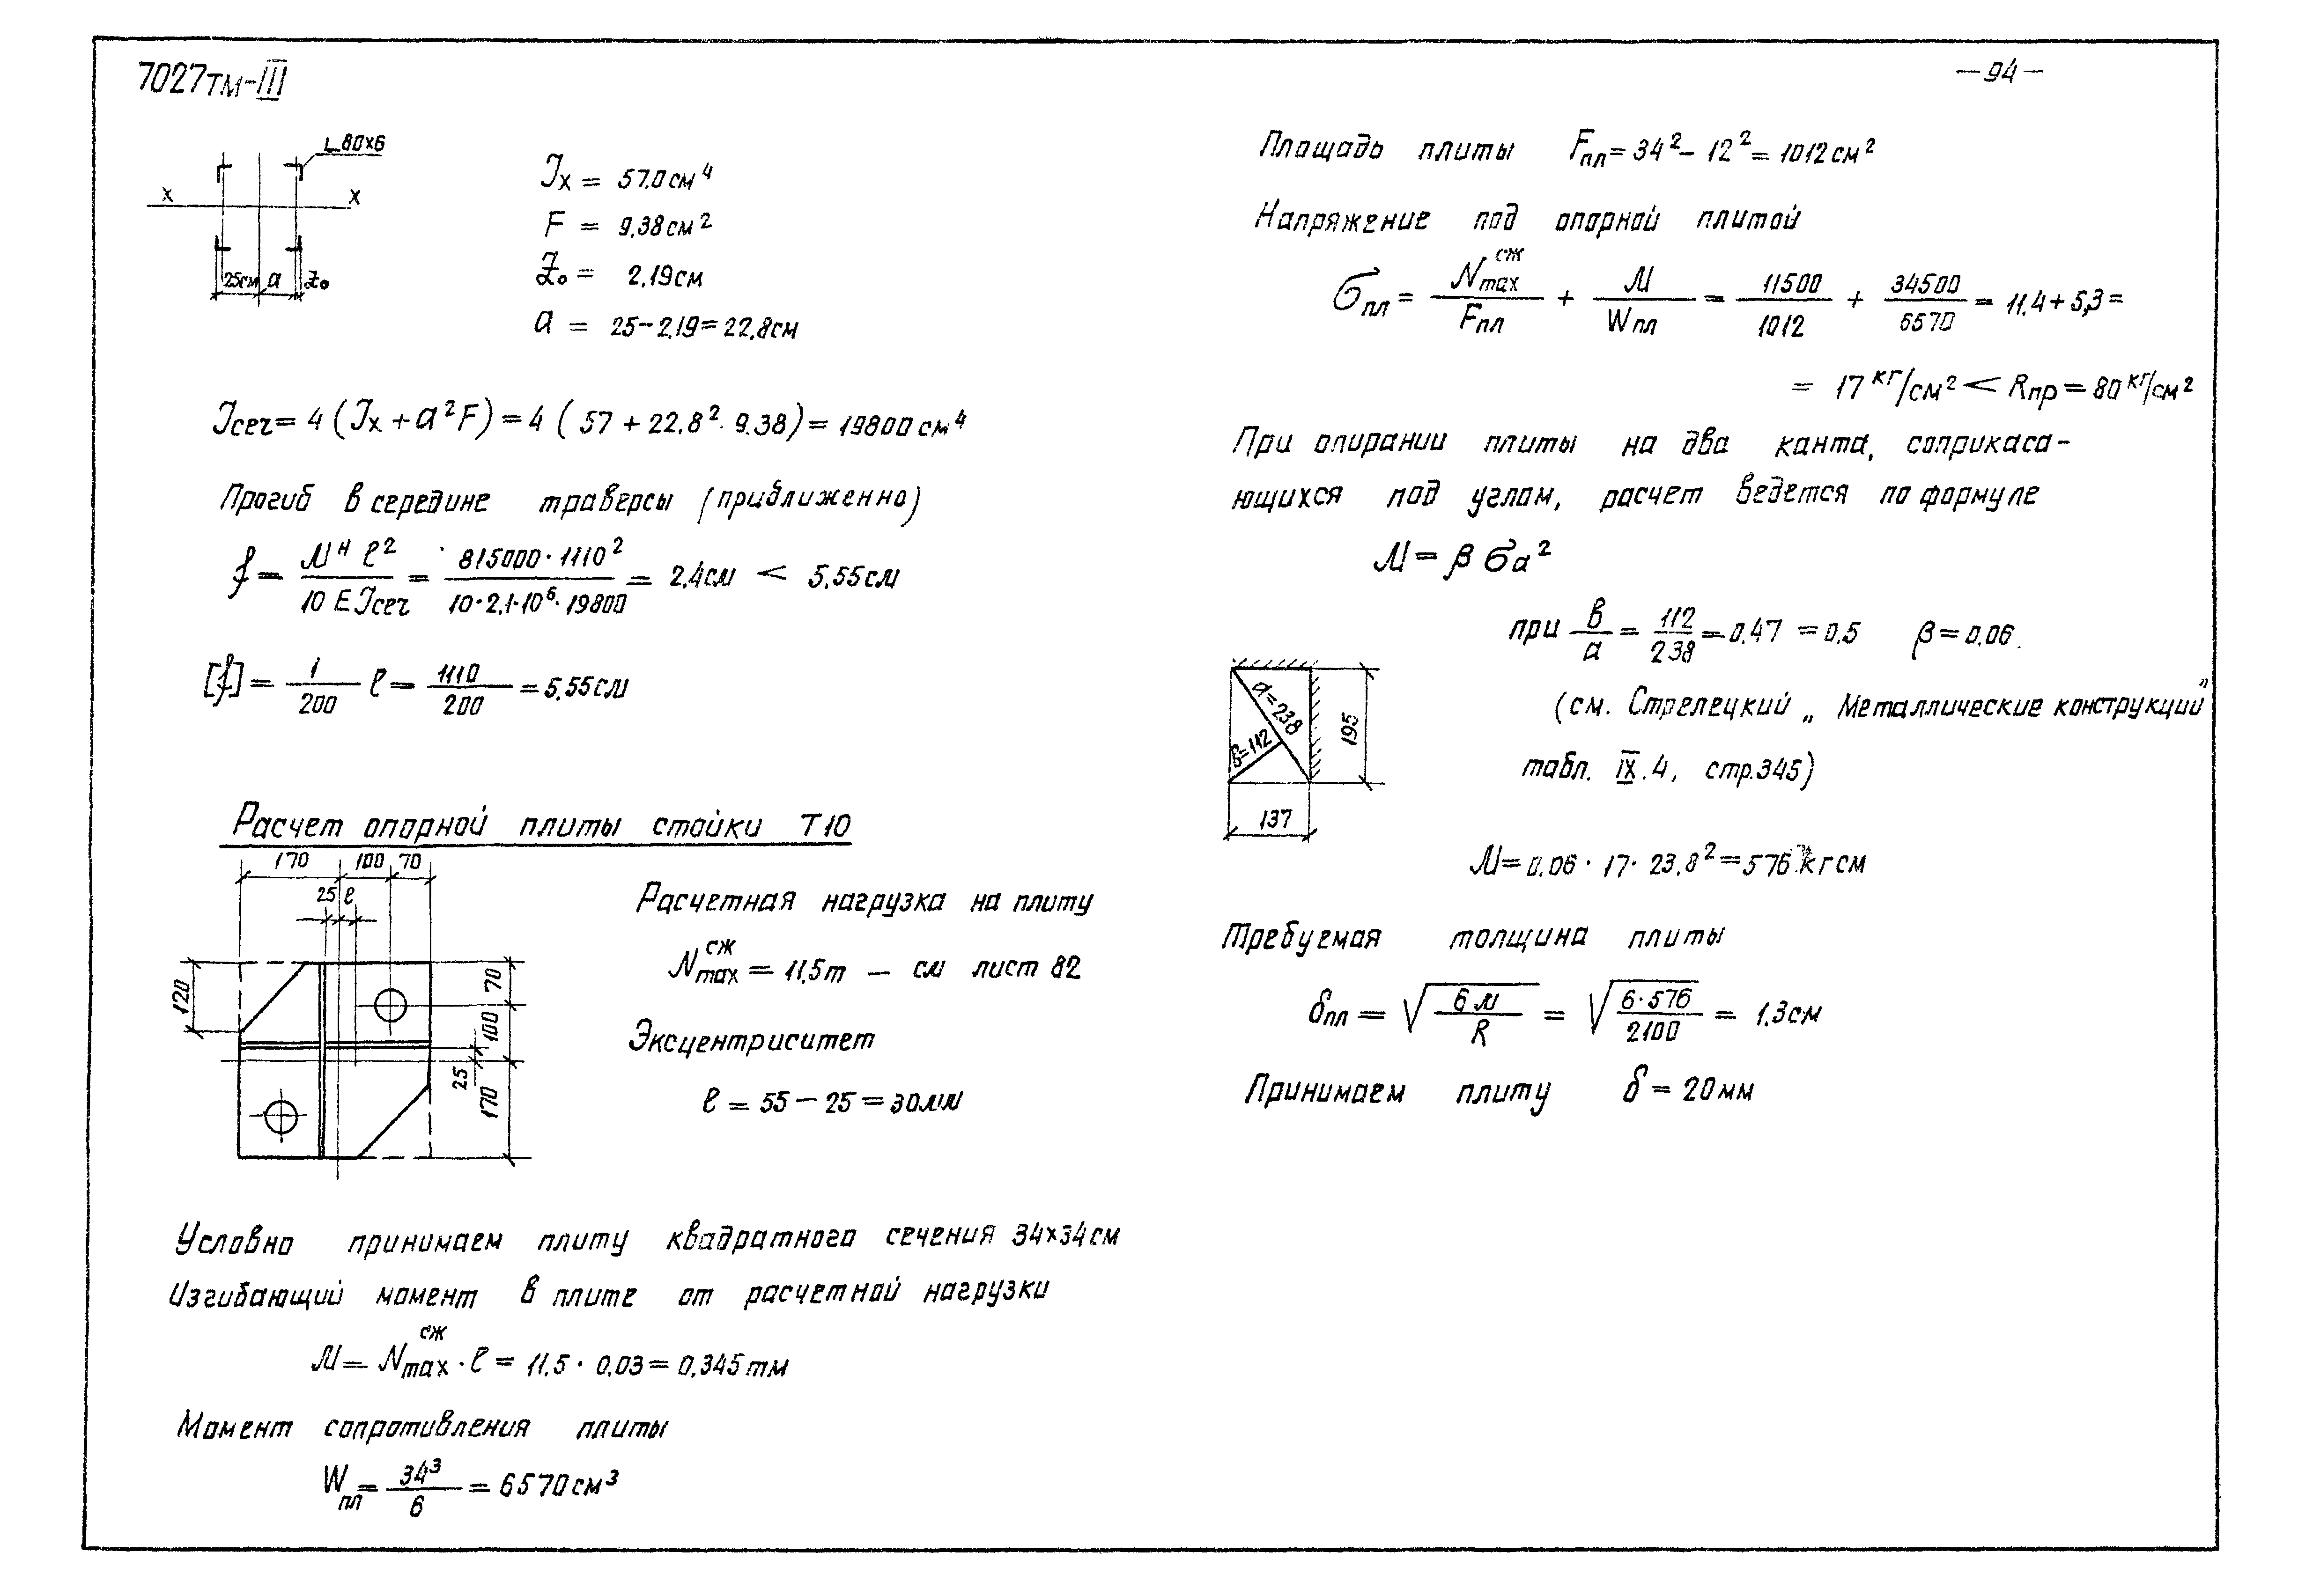 7027тм-III
-94-
∟80×6
x x
25см a z₀
Jx = 57.0 см⁴
F = 9.38 см²
z₀ = 2.19 см
a = 25-2.19=22.8 см
Jсеч = 4 (Jx + a²F) = 4 ( 57 + 22.8² · 9.38) = 19800 см⁴
Прогиб в середине траверсы (приближенно)
f = Mᴴ ℓ² / 10 E Jсеч = 815000 · 1110² / 10 · 2.1 · 10⁶ · 19800 = 2.4см < 5.55см
[f] = 1/200 ℓ = 1110/200 = 5.55см
Расчет опорной плиты стойки Т10
170 100 70
25 ℓ
120
70
100
25
170
Расчетная нагрузка на плиту
Nmax^сж = 11,5т – см лист 82
Эксцентриситет
ℓ = 55 – 25 = 30мм
Условно принимаем плиту квадратного сечения 34×34см
Изгибающий момент в плите от расчетной нагрузки
M = Nmax^сж · ℓ = 11.5 · 0.03 = 0.345тм
Момент сопротивления плиты
Wпл = 34³/6 = 6570 см³
Площадь плиты Fпл = 34² - 12² = 1012 см²
Напряжение под опорной плитой
σпл = Nmax^сж / Fпл + M / Wпл = 11500/1012 + 34500/6570 = 11.4 + 5,3 =
= 17 кг/см² < Rпр = 80 кг/см²
При опирании плиты на два канта, соприкаса-
ющихся под углом, расчет ведется по формуле
M = β σ a²
при в/a = 112/238 = 0.47 = 0.5 β = 0.06.
(см. Стрелецкий „Металлические конструкции"
табл. IX.4, стр.345)
a=238
в=112
195
137
M = 0.06 · 17 · 23.8² = 576 кгсм
Требуемая толщина плиты
δпл = √(6M / R) = √(6·576 / 2100) = 1.3см
Принимаем плиту δ = 20мм